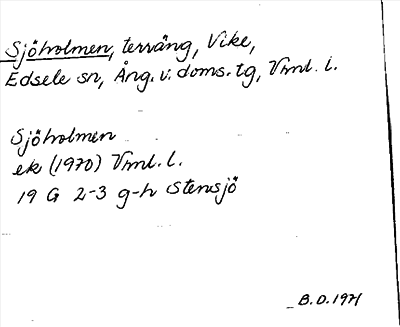 Sjöholmen, terräng, Vike,
Edsele sn, Ång. v. doms. tg, Vrnl. l.
Sjöholmen
ek (1970) Vrnl. l.
19 G 2-3 g-h Stensjö
B.D. 1971